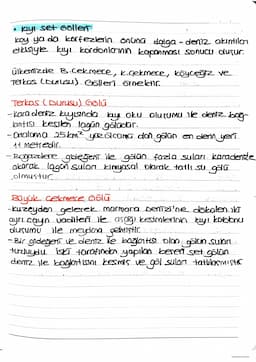 • Kıyı set Gölleri
Koy ya da körfezlerin önünü dalga-deniz akıntıları
etkisiyle kıyı kordonlarının kapanması sonucu oluşur.
Ülkemizde B.Çekmece, K.Çekmece, Köyceğiz ve
Terkos (Durusu) Gölleri örnektir.
Terkos (Durusu) Gölü
-Karadeniz kıyısında kıyı oku oluşumu ile deniz bağ-
lantısı kesilen lagün gölüdür.
-Ortalama 25 km² yüzölçüme olan gölün en derin yeri
11 metredir.
göleğeni ile gölün fazla suları karadenize
akarak lagün suları kimyasal olarak tatlı su gölü
olmuştur.
Büyük Çekmece Gölü
-Kuzeyden gelerek marmara denizi'ne dökülen iki
ayrı çayın vadileri ile aşağı kesimlerinin kıyı kordonu
oluşumu ile meydana gelmiştir.
-Bir gideğeni ve deniz ile bağlantısı olan gölün suları
tuzluydu. İski tarafından yapılan beşeri set gölün
deniz ile bağlantısını kesmiş ve göl suları tatlılaşmıştır